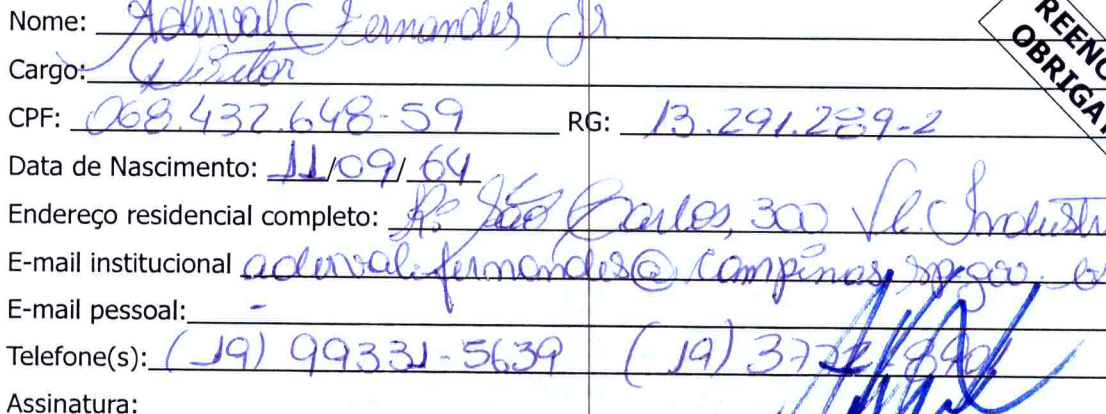 Nome: Aderval Fernandes Jr
REENC
OBRIGAT
Cargo: Diretor
CPF: 068.437.648-59 RG: 13.291.289-2
Data de Nascimento: 11/09/64
Endereço residencial completo: R: São Carlos, 300 Vl. Industri
E-mail institucional aderval.fernandes@campinas.sp.gov.b
E-mail pessoal: -
Telefone(s): (19) 99331-5639 (19)
Assinatura: